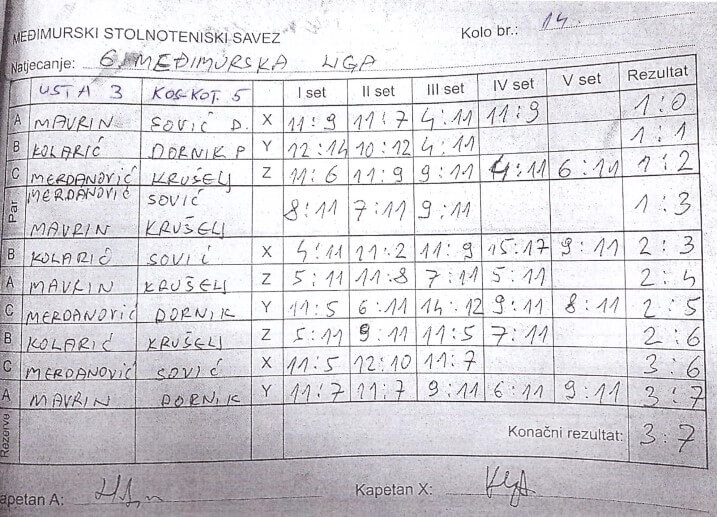 MEĐIMURSKI STOLNOTENIŠKI SAVEZ Kolo br.: 14.
Natjecanje: 6. MEĐIMURSKA LIGA
USTA 3 KOG-KOT. 5 I set II set III set IV set V set Rezultat
A MAVRIN SOVIĆ D. X 11:9 11:7 4:11 11:9 1:0
B KOLARIĆ DORNIK P Y 12:14 10:12 4:11 1:1
C MERDANOVIĆ KRUŠELJ Z 11:6 11:9 9:11 4:11 6:11 1:2
Par MERDANOVIĆ SOVIĆ 8:11 7:11 9:11 1:3
MAVRIN KRUŠELJ
B KOLARIĆ SOVIĆ X 4:11 11:2 11:9 15:17 9:11 2:3
A MAVRIN KRUŠELJ Z 5:11 11:8 7:11 5:11 2:4
C MERDANOVIĆ DORNIK Y 11:5 6:11 14:12 9:11 8:11 2:5
B KOLARIĆ KRUŠELJ Z 5:11 9:11 11:5 7:11 2:6
C MERDANOVIĆ SOVIĆ X 11:5 12:10 11:7 3:6
A MAVRIN DORNIK Y 11:7 11:7 9:11 6:11 9:11 3:7
Rezerve Konačni rezultat: 3:7
apetan A: Kapetan X: